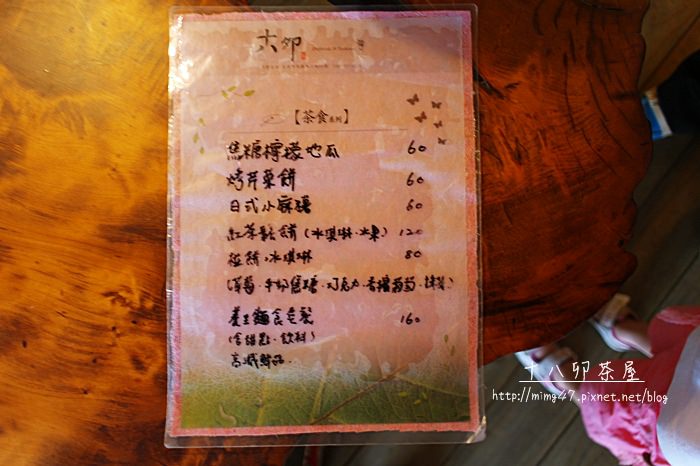 十八卯
【茶食系列】
焦糖檸檬地瓜 60
烤芹菜餅 60
日式小麻糬 60
紅茶鬆餅(冰淇淋、水果) 120
冰淇淋 80
牛奶焦糖、巧克力、香檳葡萄、抹茶)
養生麵食套餐 160
(含甜點、飲料)
十八卯茶屋
http://mimg47.pixnet.net/blog